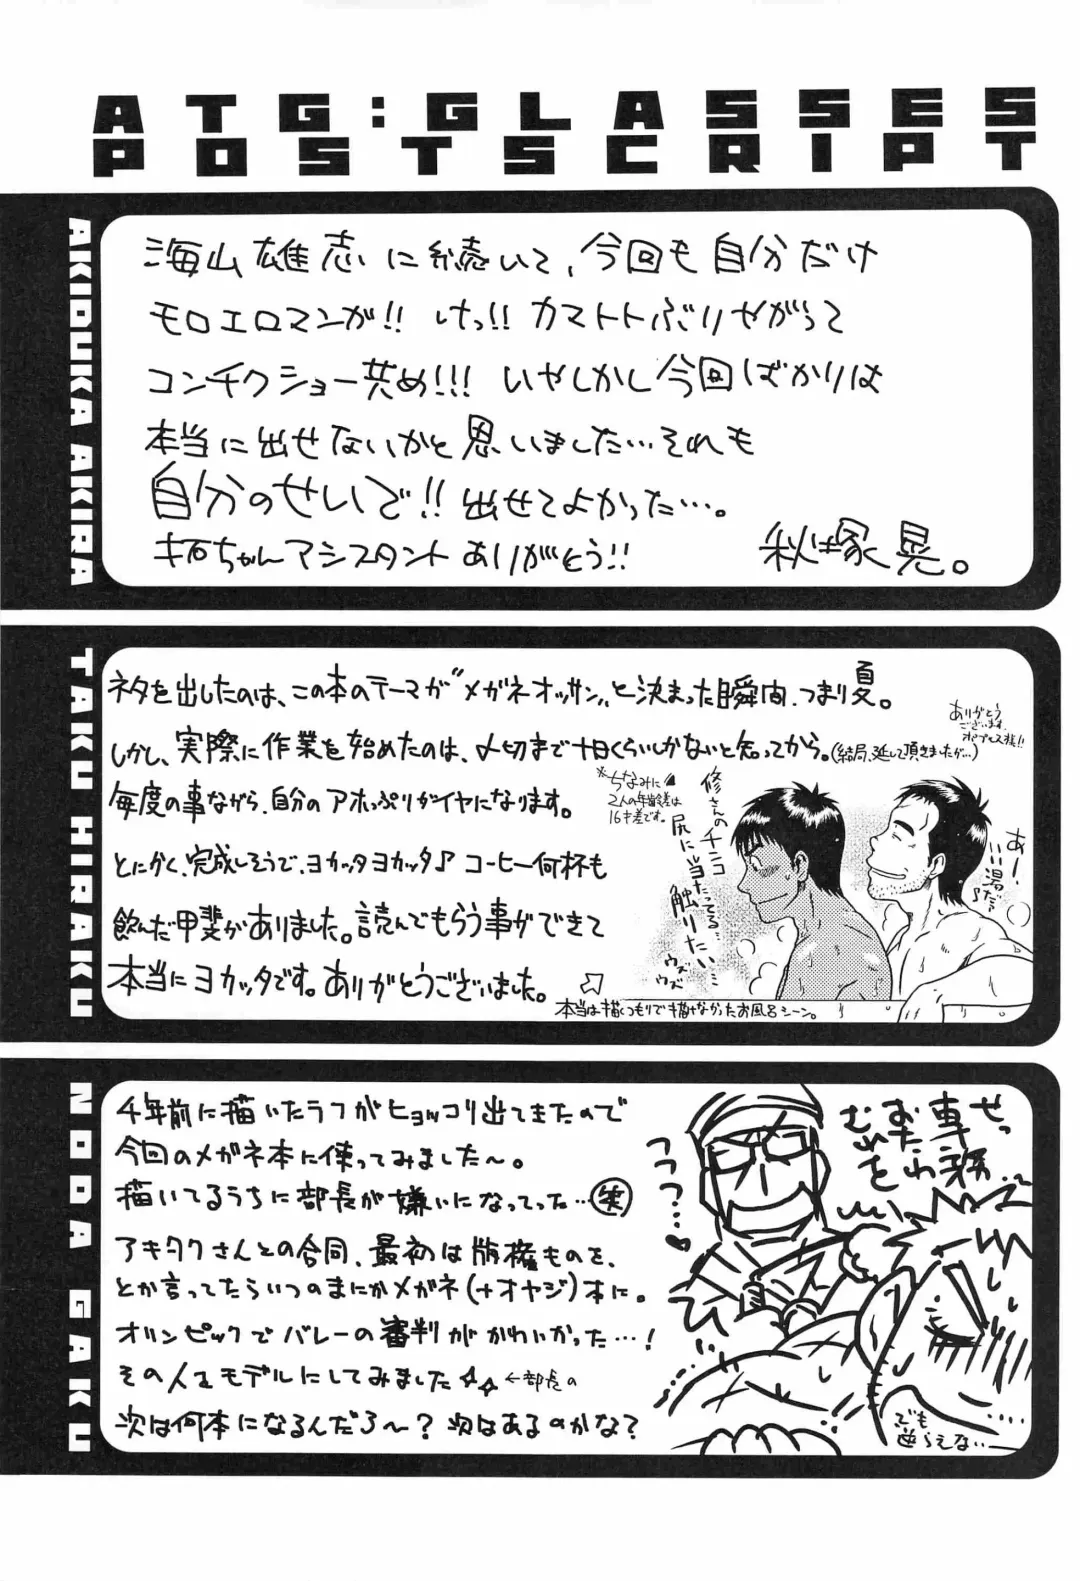 ATG:GLASSES
POSTSCRIPT
AKIDUKA AKIRA
海山雄志に続いて、今回も自分だけ
モロエロマンが!! けっ!! カマトトぶりやがって
コンチクショー共め!!! いやしかし今回ばかりは
本当に出せないかと思いました…それも
自分のせいで!! 出せてよかった…。
拓ちゃんアシスタントありがとう!!
秋塚晃。
TAKU HIRAKU
ネタを出したのは、この本のテーマが"メガネオッサン"と決まった瞬間、つまり夏。
しかし、実際に作業を始めたのは、〆切まで十日くらいしかないと知ってから。(結局、延して頂きましたが…)
ありがとう
ございます。
毎度の事ながら、自分のアホっぷりがイヤになります。
とにかく、完成しそうで、ヨカッタヨカッタ♪ コーヒー何杯も
飲んだ甲斐がありました。読んでもらう事ができて
本当にヨカッタです。ありがとうございました。
※ちなみに
2人の年齢差は
16才差です。
修さんのチンコ
尻に当たってる…
触りたい…
ウズ
ウズ
あー!
いい湯だぁ♪
本当は描くつもりで描けなかったお風呂シーン。
NODA GAKU
4年前に描いたラフがヒョッコリ出てきたので
今回のメガネ本に使ってみました〜。
描いてるうちに部長が嫌いになってった…笑
アキタクさんとの合同、最初は版権ものを、
とか言ってたらいつのまにかメガネ(+オヤジ)本に。
オリンピックでバレーの審判がかわいかった…!
その人をモデルにしてみました☆☆ ←部長の
次は何本になるんだろ〜? 次はあるのかな?
フフフフ…♥
せっ
専務
おたわ
むれを
でも
逆らえない